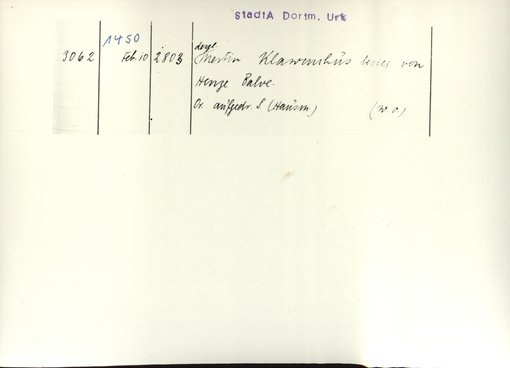 StadtA Dortm. Urk
1450
3062 Feb. 10 2803 desgl.
Mertin Klawinchus von
Henze Balve.
Or. aufgedr. S. (Hausm) (w.o.)